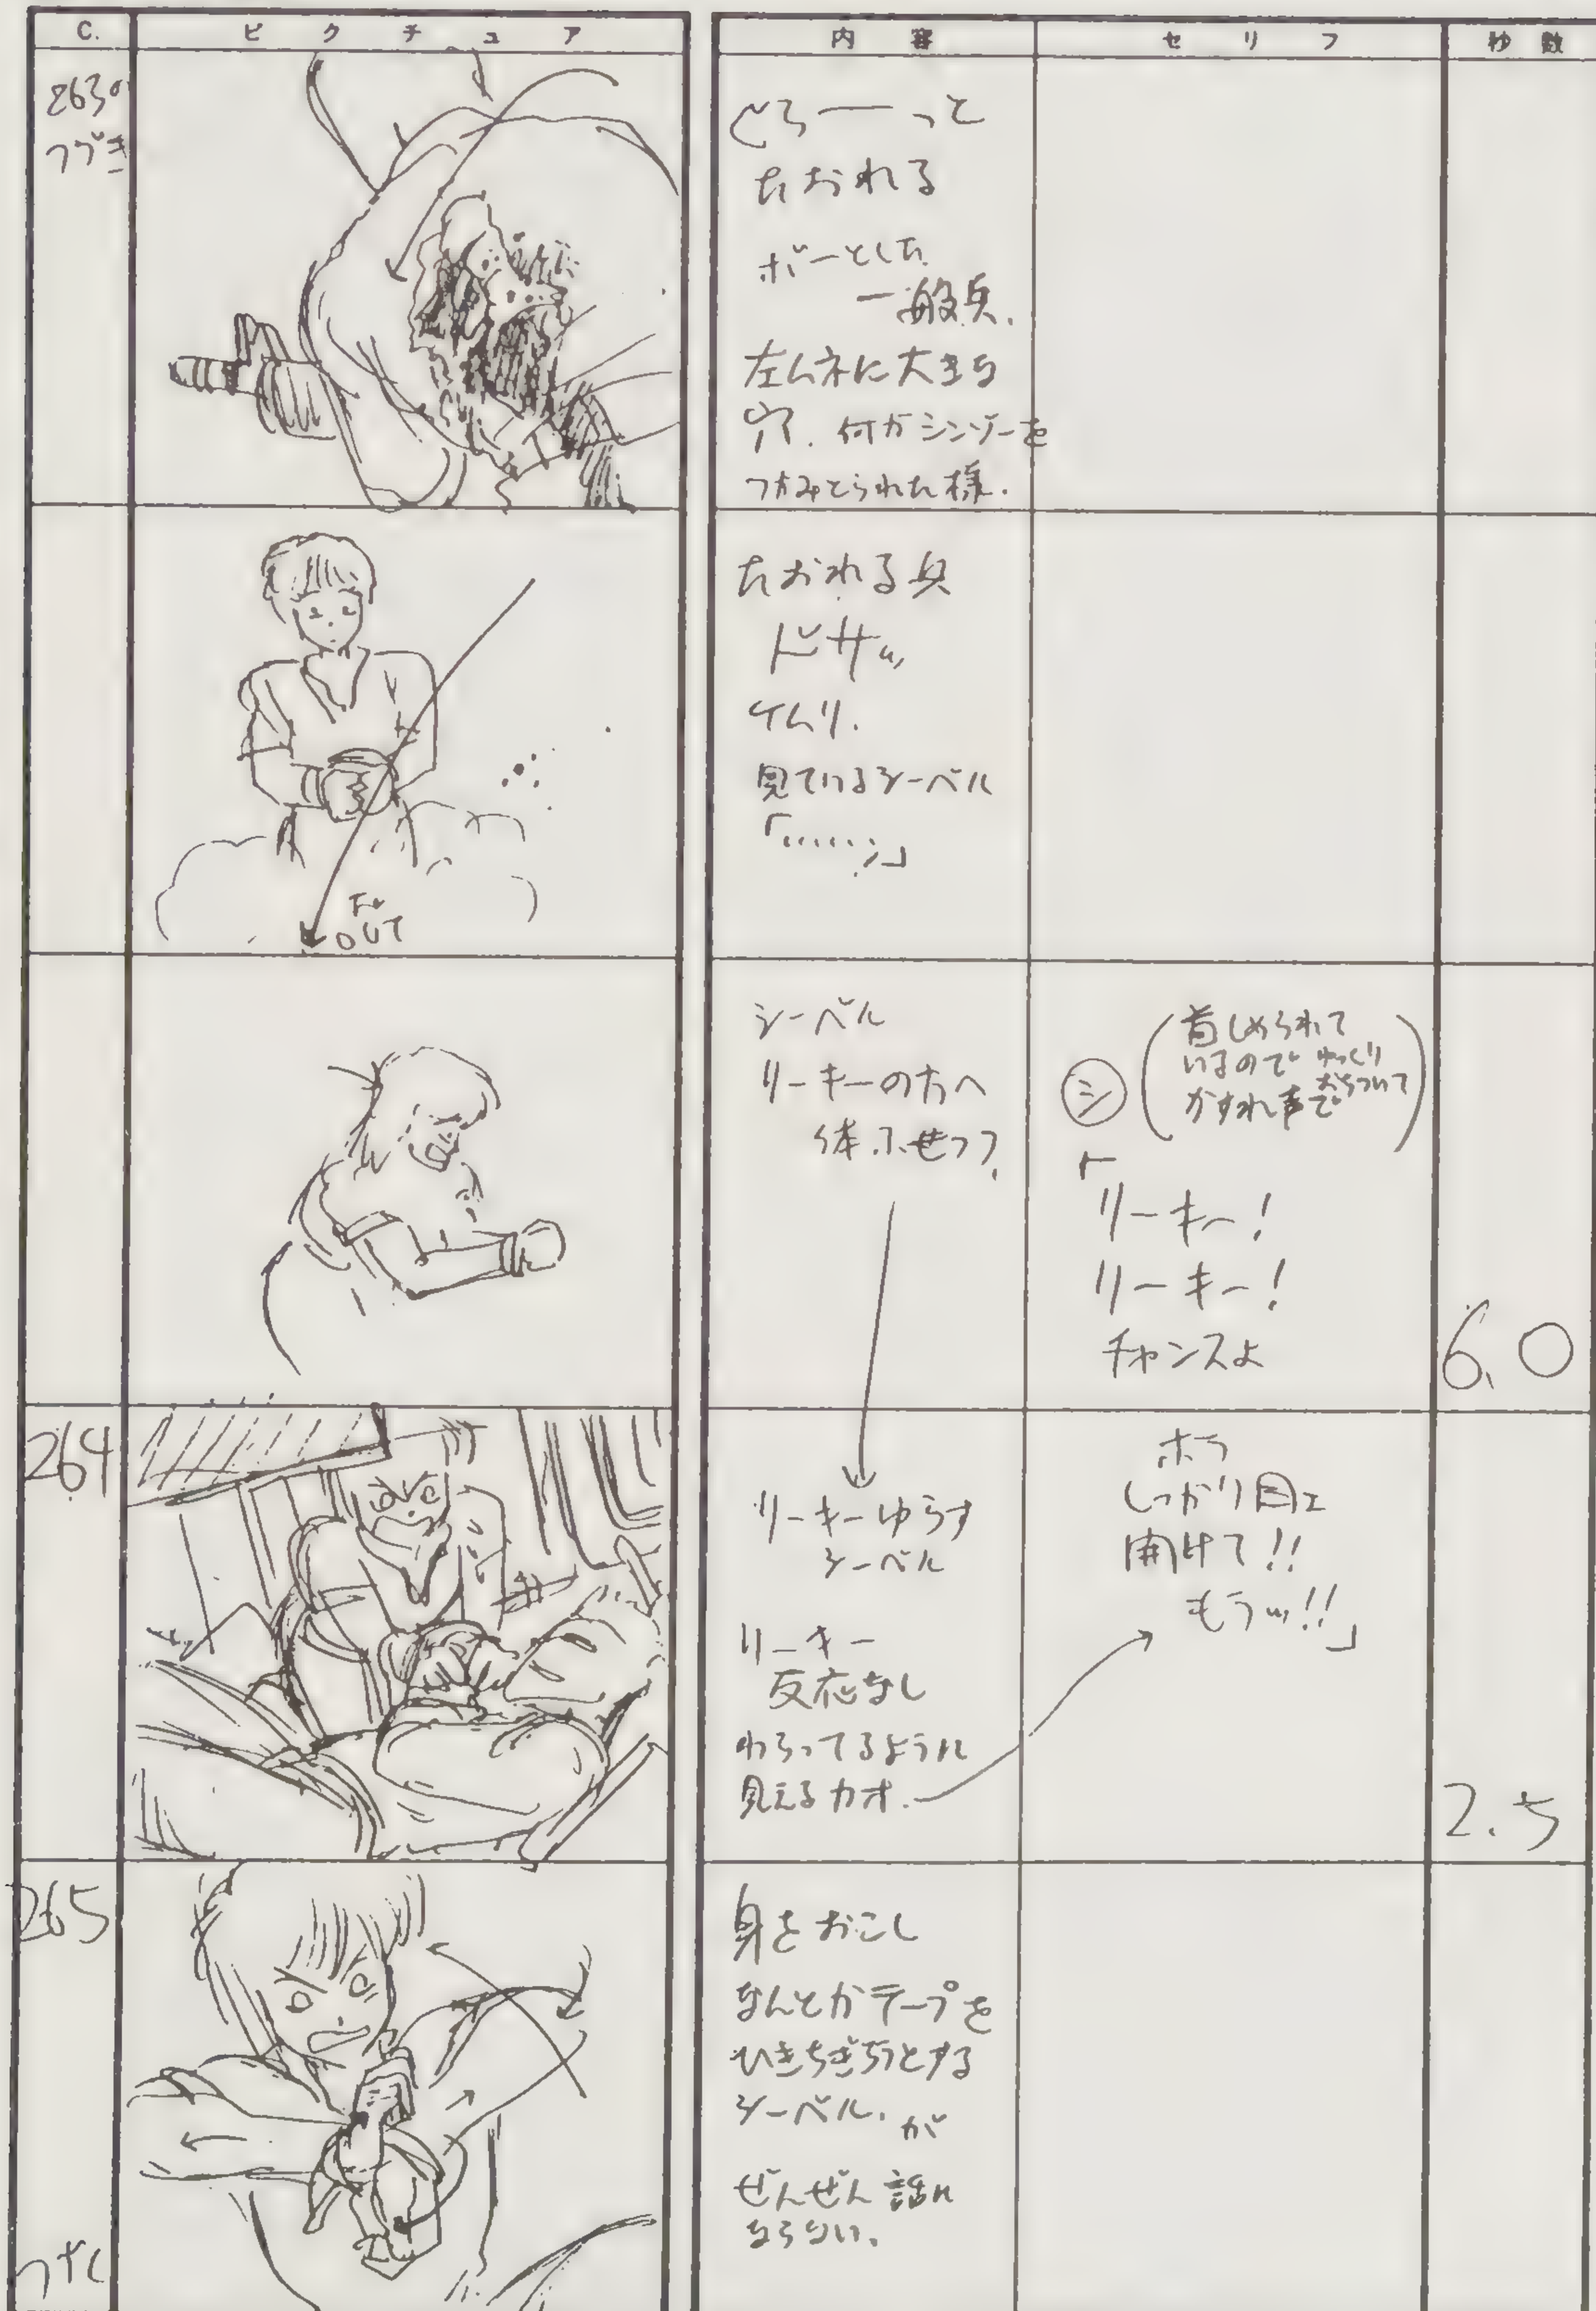 C.
ピクチュア
内容
セリフ
秒数
263の
つづき
どろーーっと
たおれる
ボーとした
一般兵.
左ムネに大きな
穴. 何かシンゾーを
つかみとられた様.
たおれる兵
ドサッ
ケムリ.
見ているシーベル
「......」
OUT
シーベル
リーキーの方へ
体ふせつつ
シ
首しめられて
いるので ゆっくり
おちついて
かすれ声で
「
リーキー!
リーキー!
チャンスよ
6.0
264
リーキーゆらす
シーベル
リーキー
反応なし
わらってるように
見えるカオ.
ホラ
しっかり目エ
開けて!!
もうッ!!」
2.5
265
身をおこし
なんとかテープを
ひきちぎろうとする
シーベル. が
ぜんぜん話に
ならない.